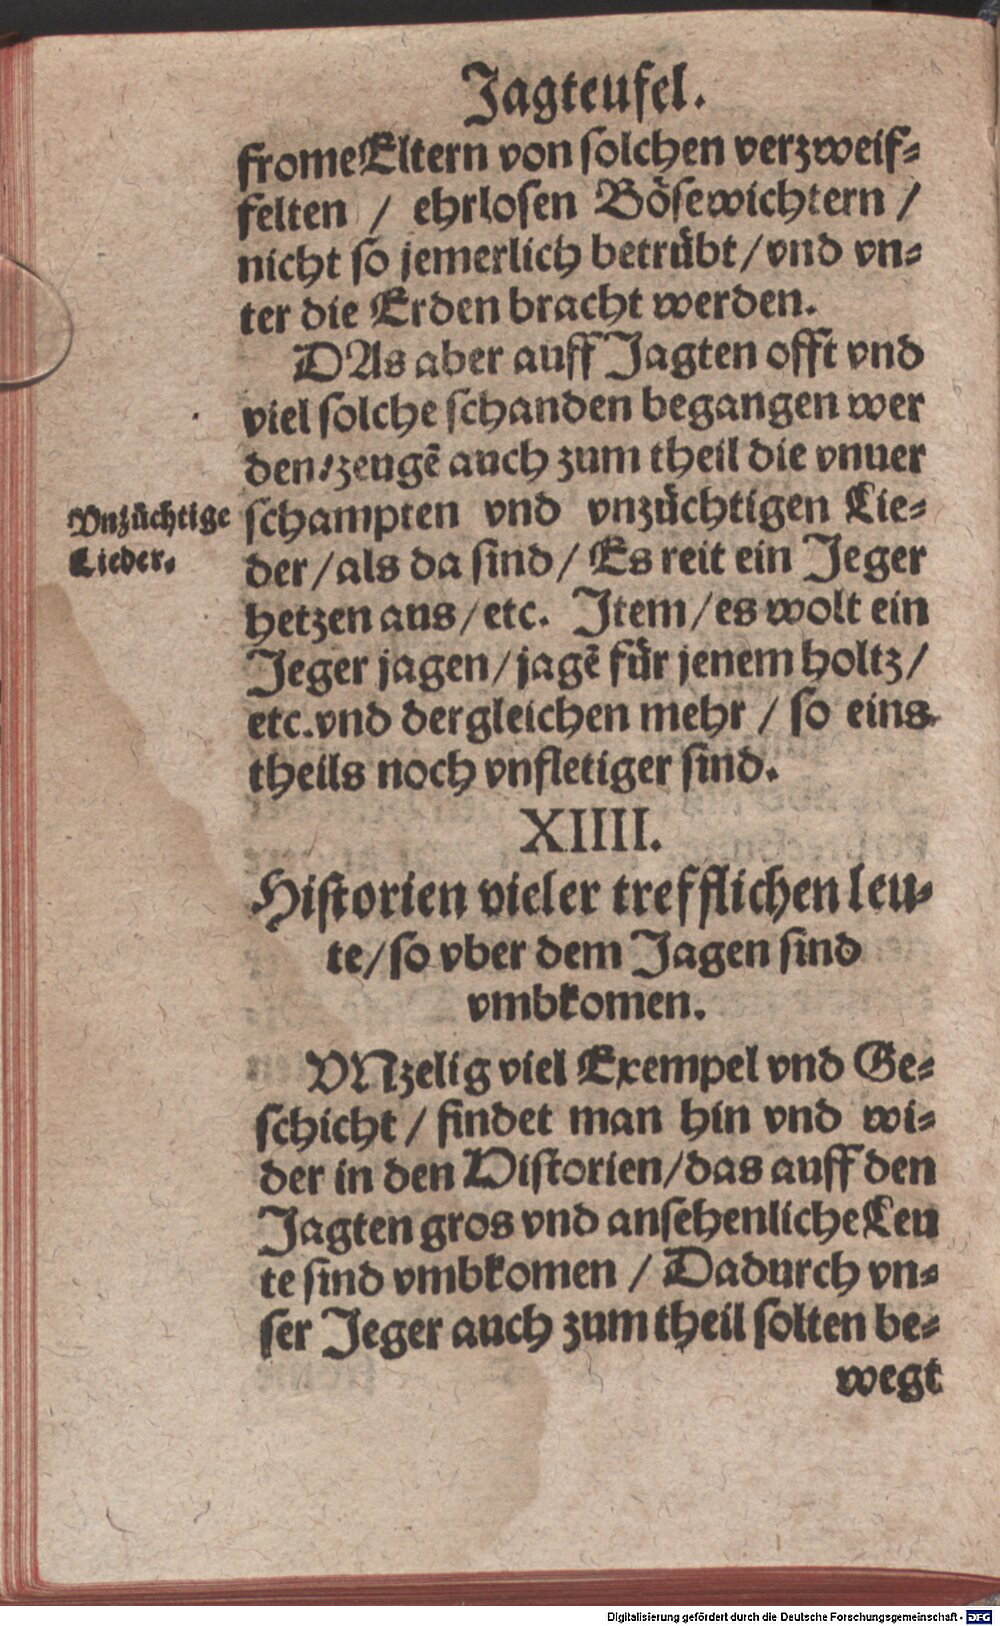 Jagteufel.
frome Eltern von solchen verzweif⸗
felten / ehrlosen Bösewichtern /
nicht so jemerlich betrübt / vnd vn⸗
ter die Erden bracht werden.
DAs aber auff Jagten offt vnd
viel solche schanden begangen wer
den / zeugē auch zum theil die vnuer
Vnzüchtige
Lieder.
schampten vnd vnzüchtigen Lie⸗
der / als da sind / Es reit ein Jeger
hetzen aus / etc. Jtem / es wolt ein
Jeger jagen / jagē für jenem holtz /
etc. vnd dergleichen mehr / so eins
theils noch vnfletiger sind.
XIIII.
Historien vieler trefflichen leu⸗
te / so vber dem Jagen sind
vmbkomen.
VNzelig viel Exempel vnd Ge⸗
schicht / findet man hin vnd wi⸗
der in den Historien / das auff den
Jagten gros vnd ansehenliche Leu
te sind vmbkomen / Dadurch vn⸗
ser Jeger auch zum theil solten be⸗
wegt
Digitalisierung gefördert durch die Deutsche Forschungsgemeinschaft - DFG